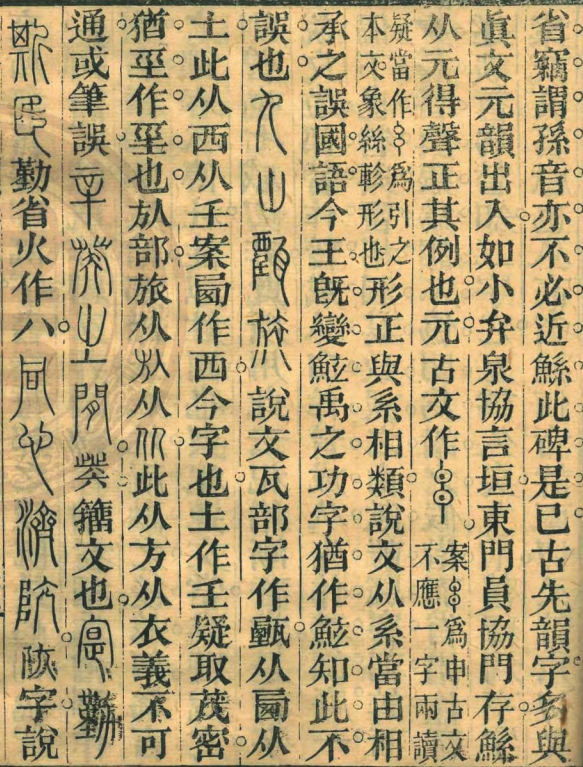 省竊謂孫音亦不必近鯀此碑是已古先韻字多與
眞文元韻出入如小弁泉協言垣東門員協門存鯀
从元得聲正其例也元古文作
案爲申古文
不應一字兩讀
疑當作爲引之
本文象絲軫形也
形正與系相類說文从系當由相
承之誤國語今王旣變鮌禹之功字猶作鮌知此不
誤也九山甄旅說文瓦部字作甄从卥从
土此从西从壬案卥作西今字也土作壬疑取茂密
猶坙作巠也㫃部旅从㫃从从此从方从衣義不可
通或筆誤籀文也勤
斯民勤省火作八同心濟字說